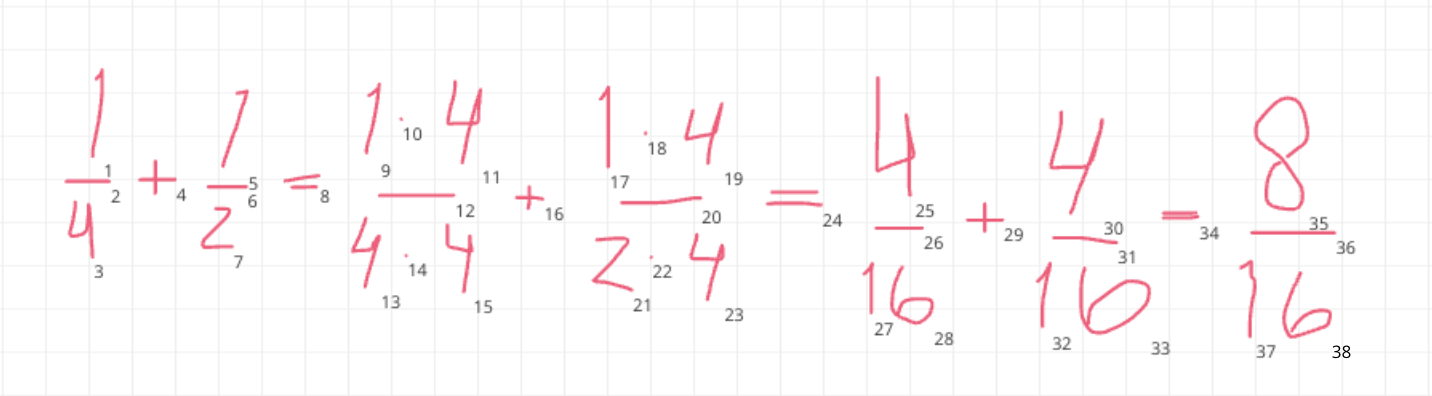 1/4 + 1/2 = (1 · 4)/(4 · 4) + (1 · 4)/(2 · 4) = 4/16 + 4/16 = 8/16
1 2 3 4 5 6 7 8 9 10 11 12 13 14 15 16 17 18 19 20 21 22 23 24 25 26 27 28 29 30 31 32 33 34 35 36 37 38